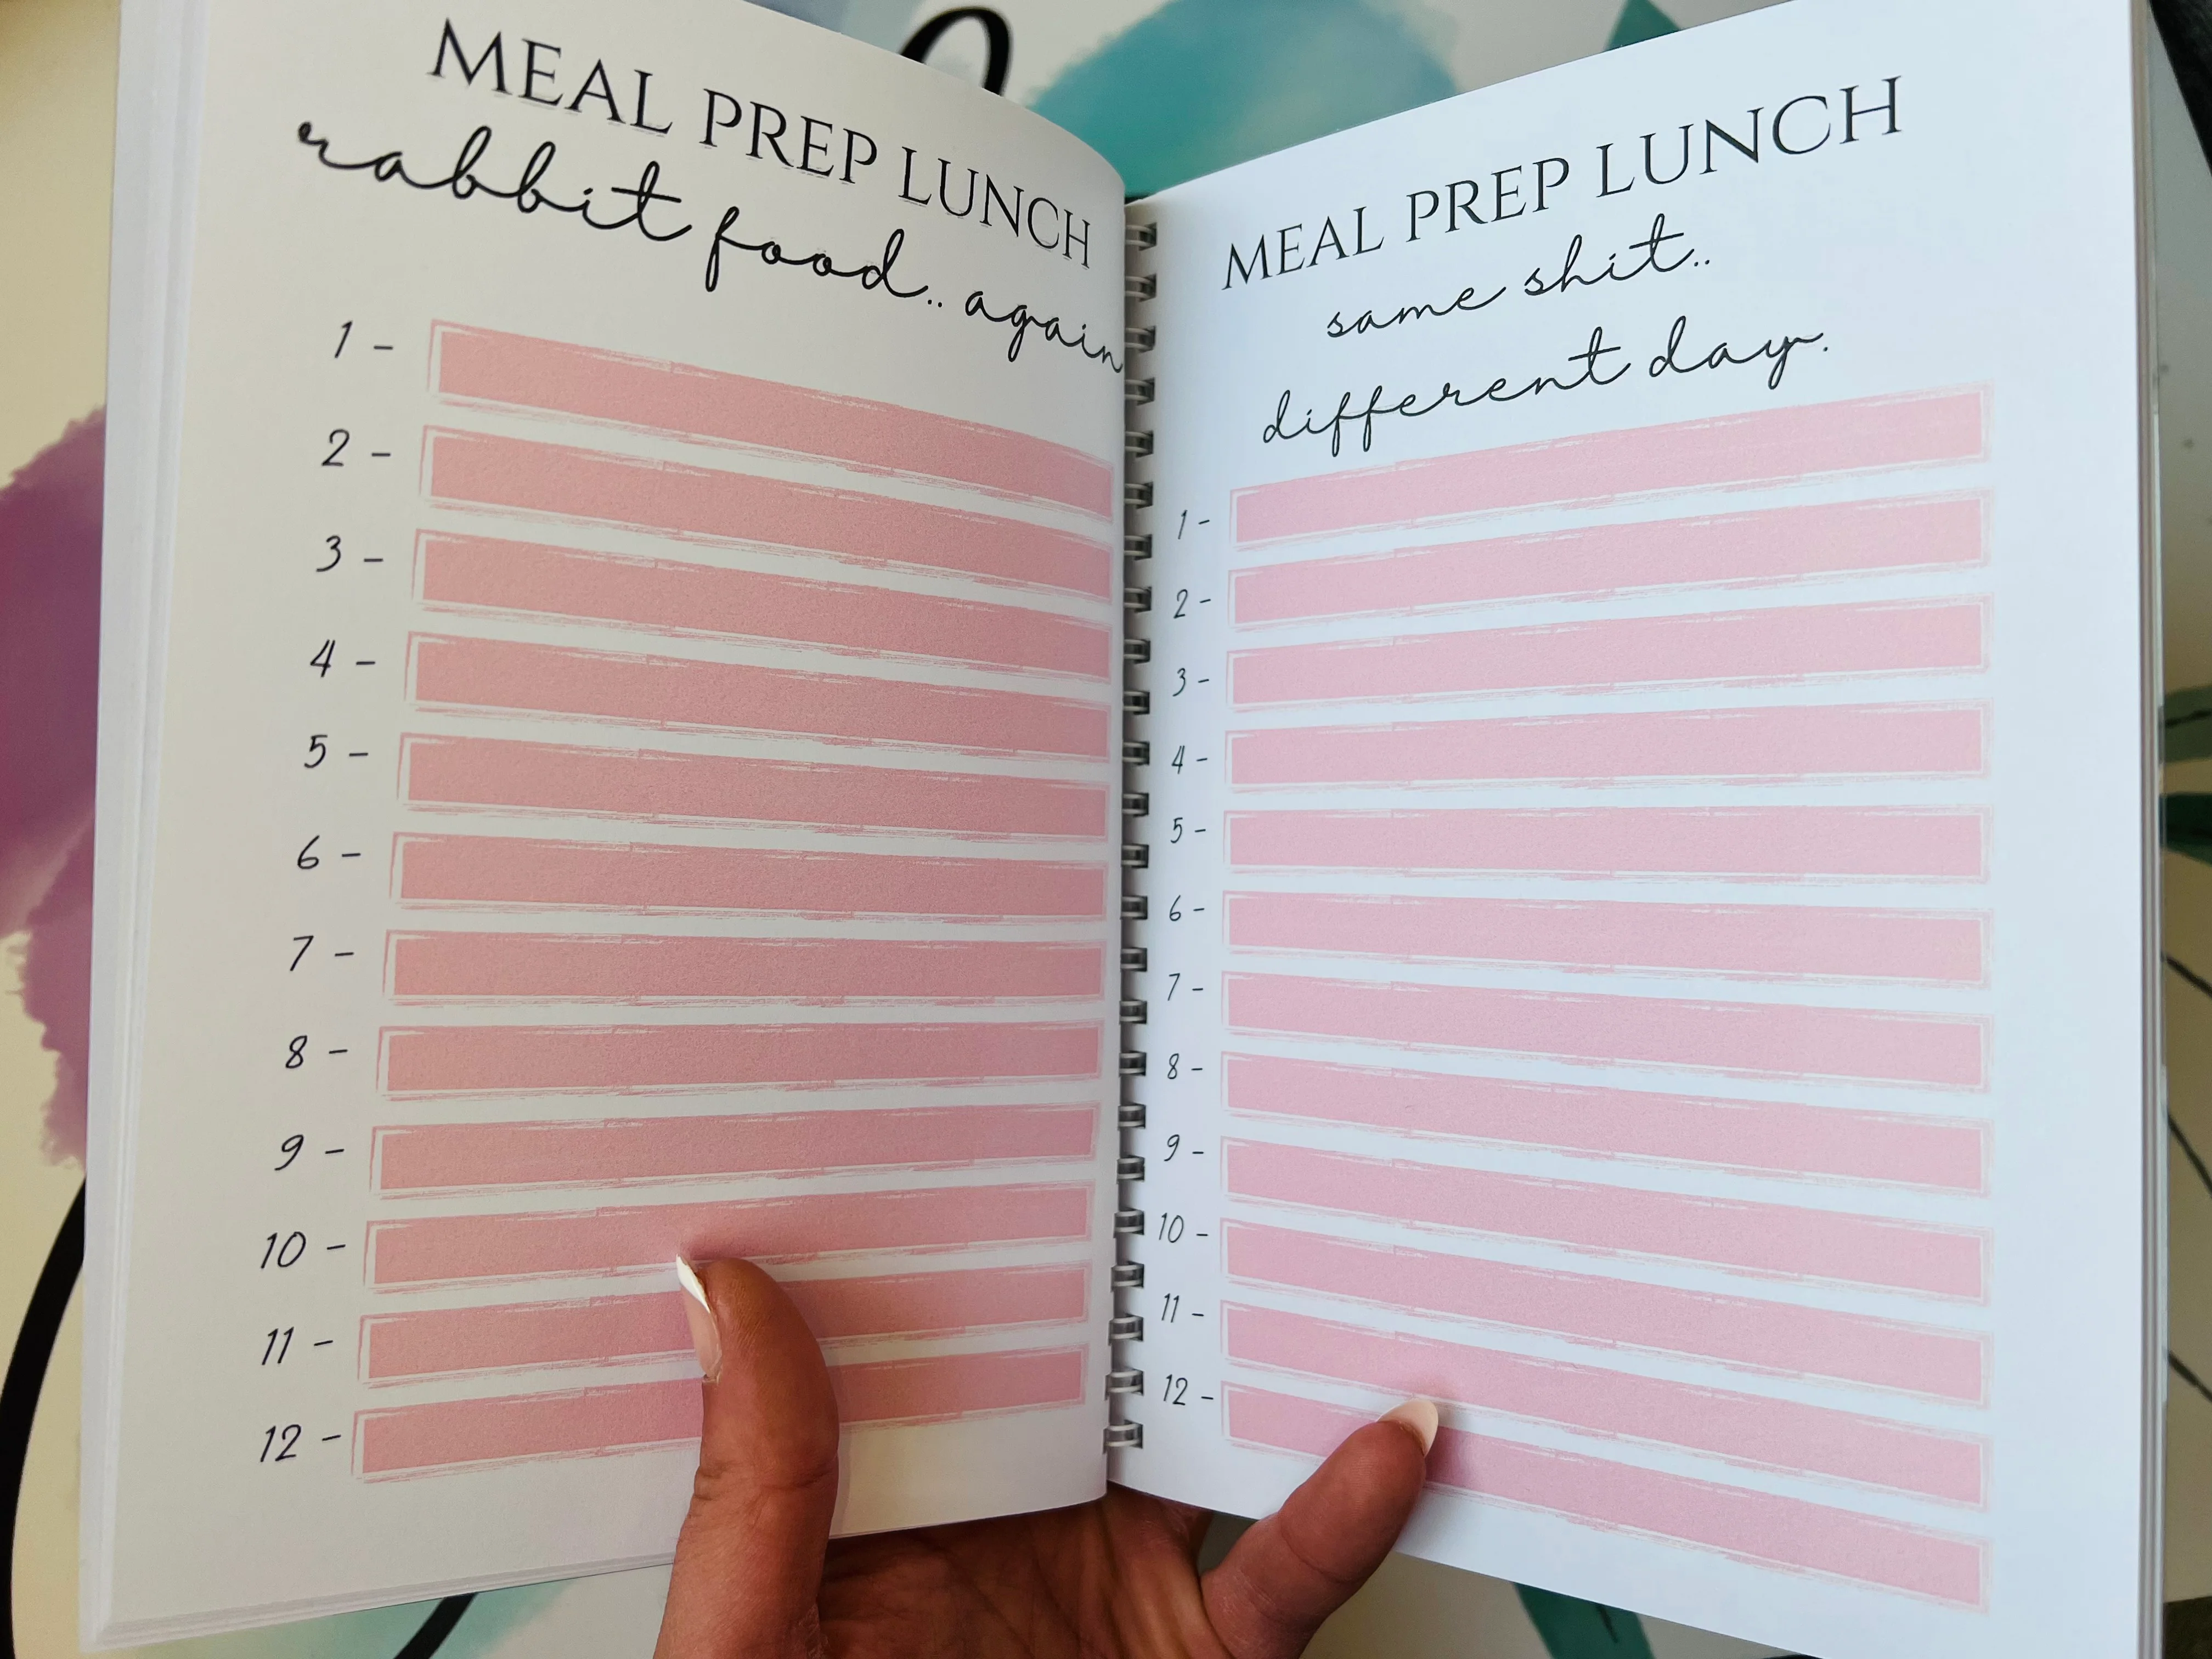 MEAL PREP LUNCH
rabbit food.. again
1 -
2 -
3 -
4 -
5 -
6 -
7 -
8 -
9 -
10 -
11 -
12 -
MEAL PREP LUNCH
same shit..
different day.
1 -
2 -
3 -
4 -
5 -
6 -
7 -
8 -
9 -
10 -
11 -
12 -